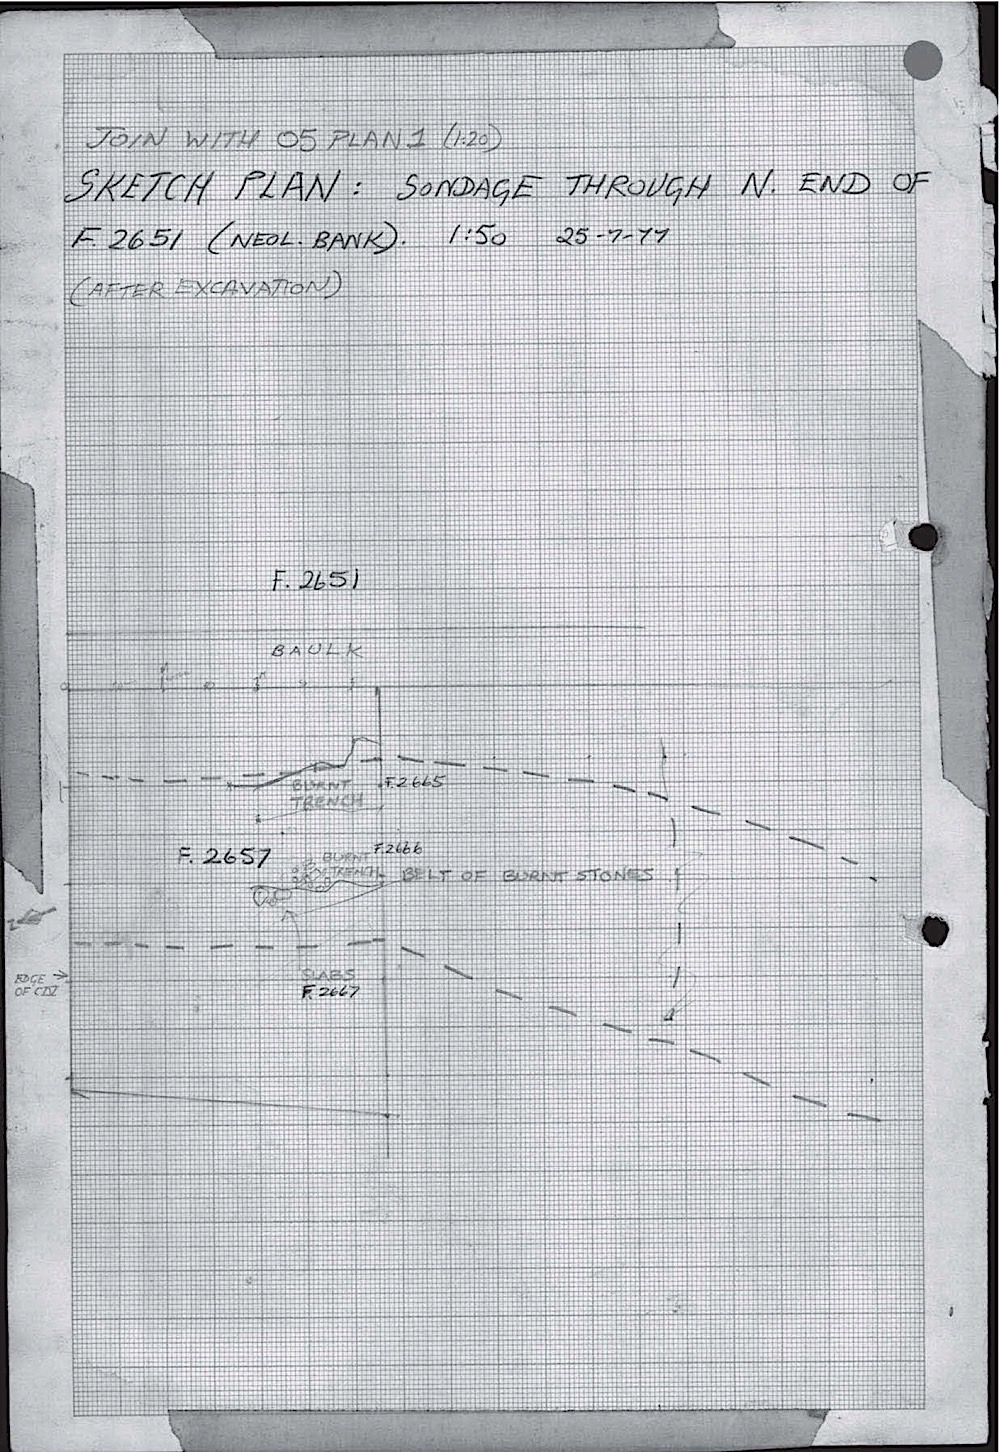 JOIN WITH 05 PLAN 1 (1:20)
SKETCH PLAN: SONDAGE THROUGH N. END OF
F. 2651 (NEOL. BANK). 1:50 25-7-77
(AFTER EXCAVATION)
F. 2651
BAULK
F. 2665
BURNT
TRENCH
F. 2657
F. 2666
BURNT
TRENCH
BELT OF BURNT STONES
EDGE
OF
SLABS
F. 2667